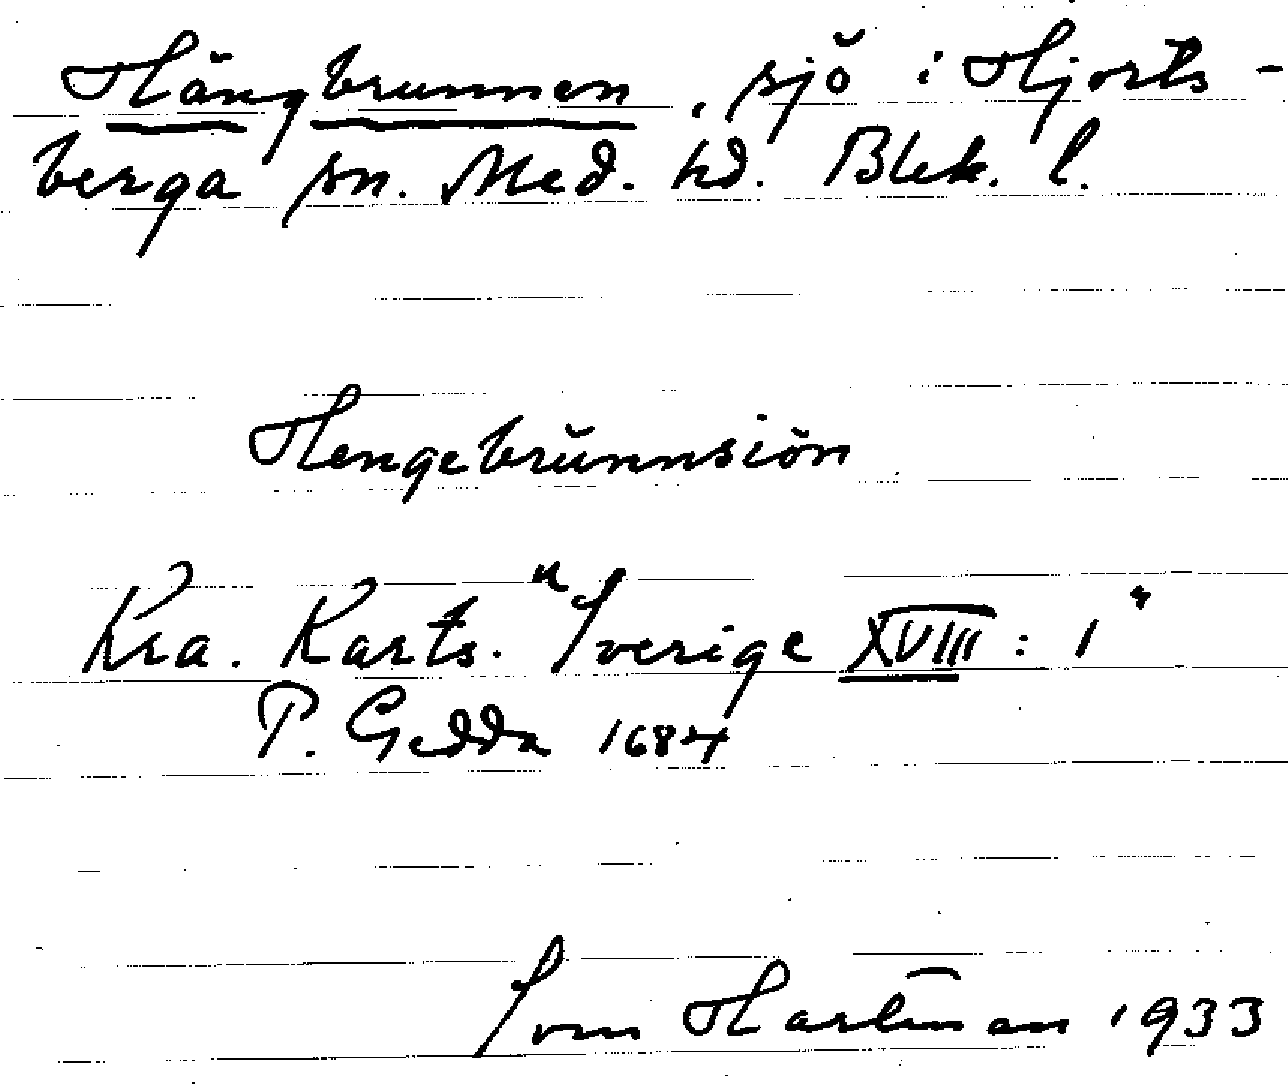 Hängbrunnen, sjö i Hjorts-
berga sn. Med. hd. Blek. l.
Hengebrŭnnsiön
Kra. Karts. "Sverige XVIII : 1"
P. Gedda 1684
Sven Hartman 1933